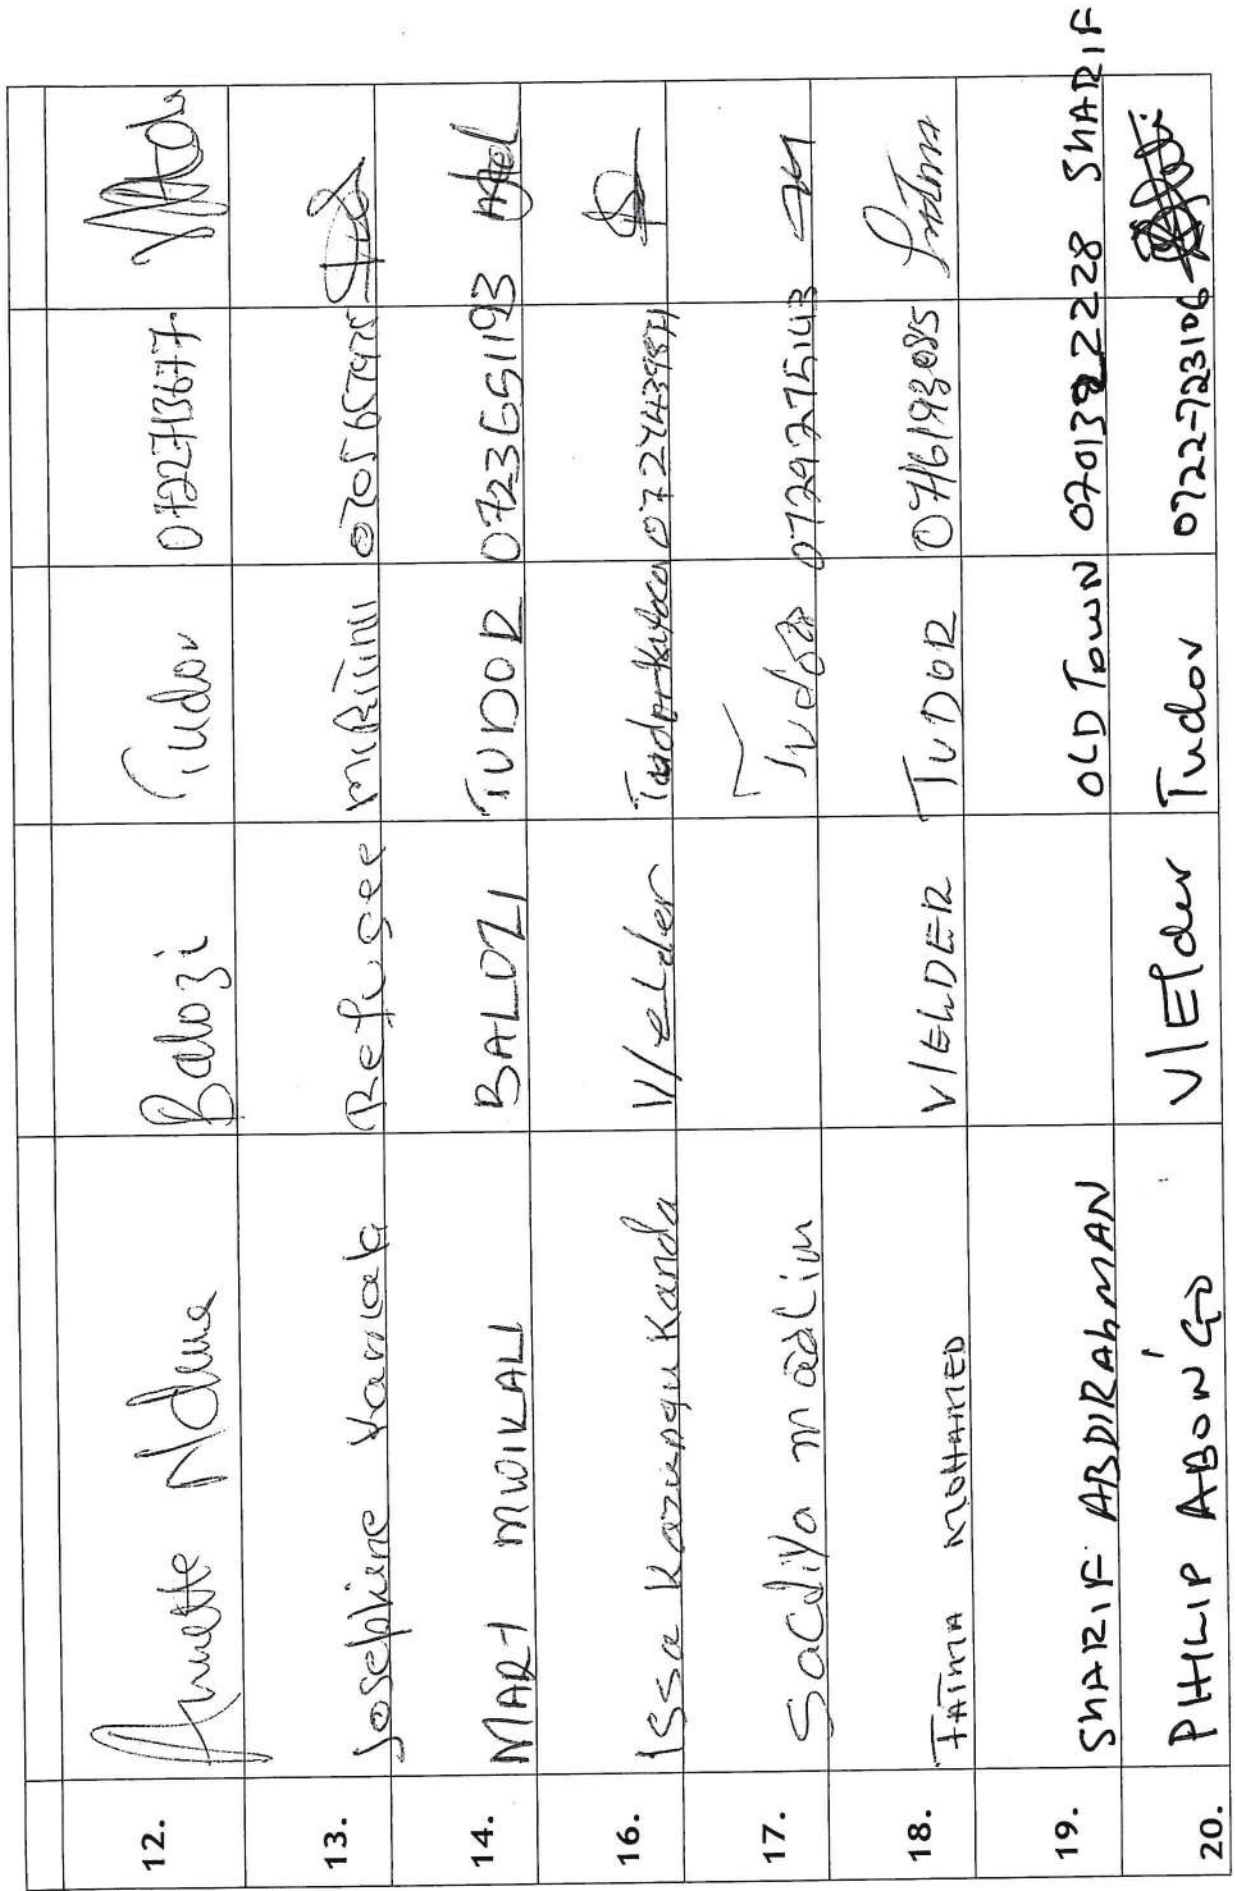 12. Annette Nduna Balozi Tudor 0722713677
13. Josephine Refugee mikitini 0705657975
14. MARY MWIKALI BALOZI TUDOR 0723651193
16. Issa Kazungu Kanda V/elder Tudor 0727439871
17. Sacdiya maalim Tudor 0729275143
18. FATMA MOHAMED V/ELDER TUDOR 0716193085 Fatma
19. SHARIF ABDIRAhMAN OLD TOWN SHARIF
20. PHILIP ABONG'O V/Elder Tudor 0722-723106